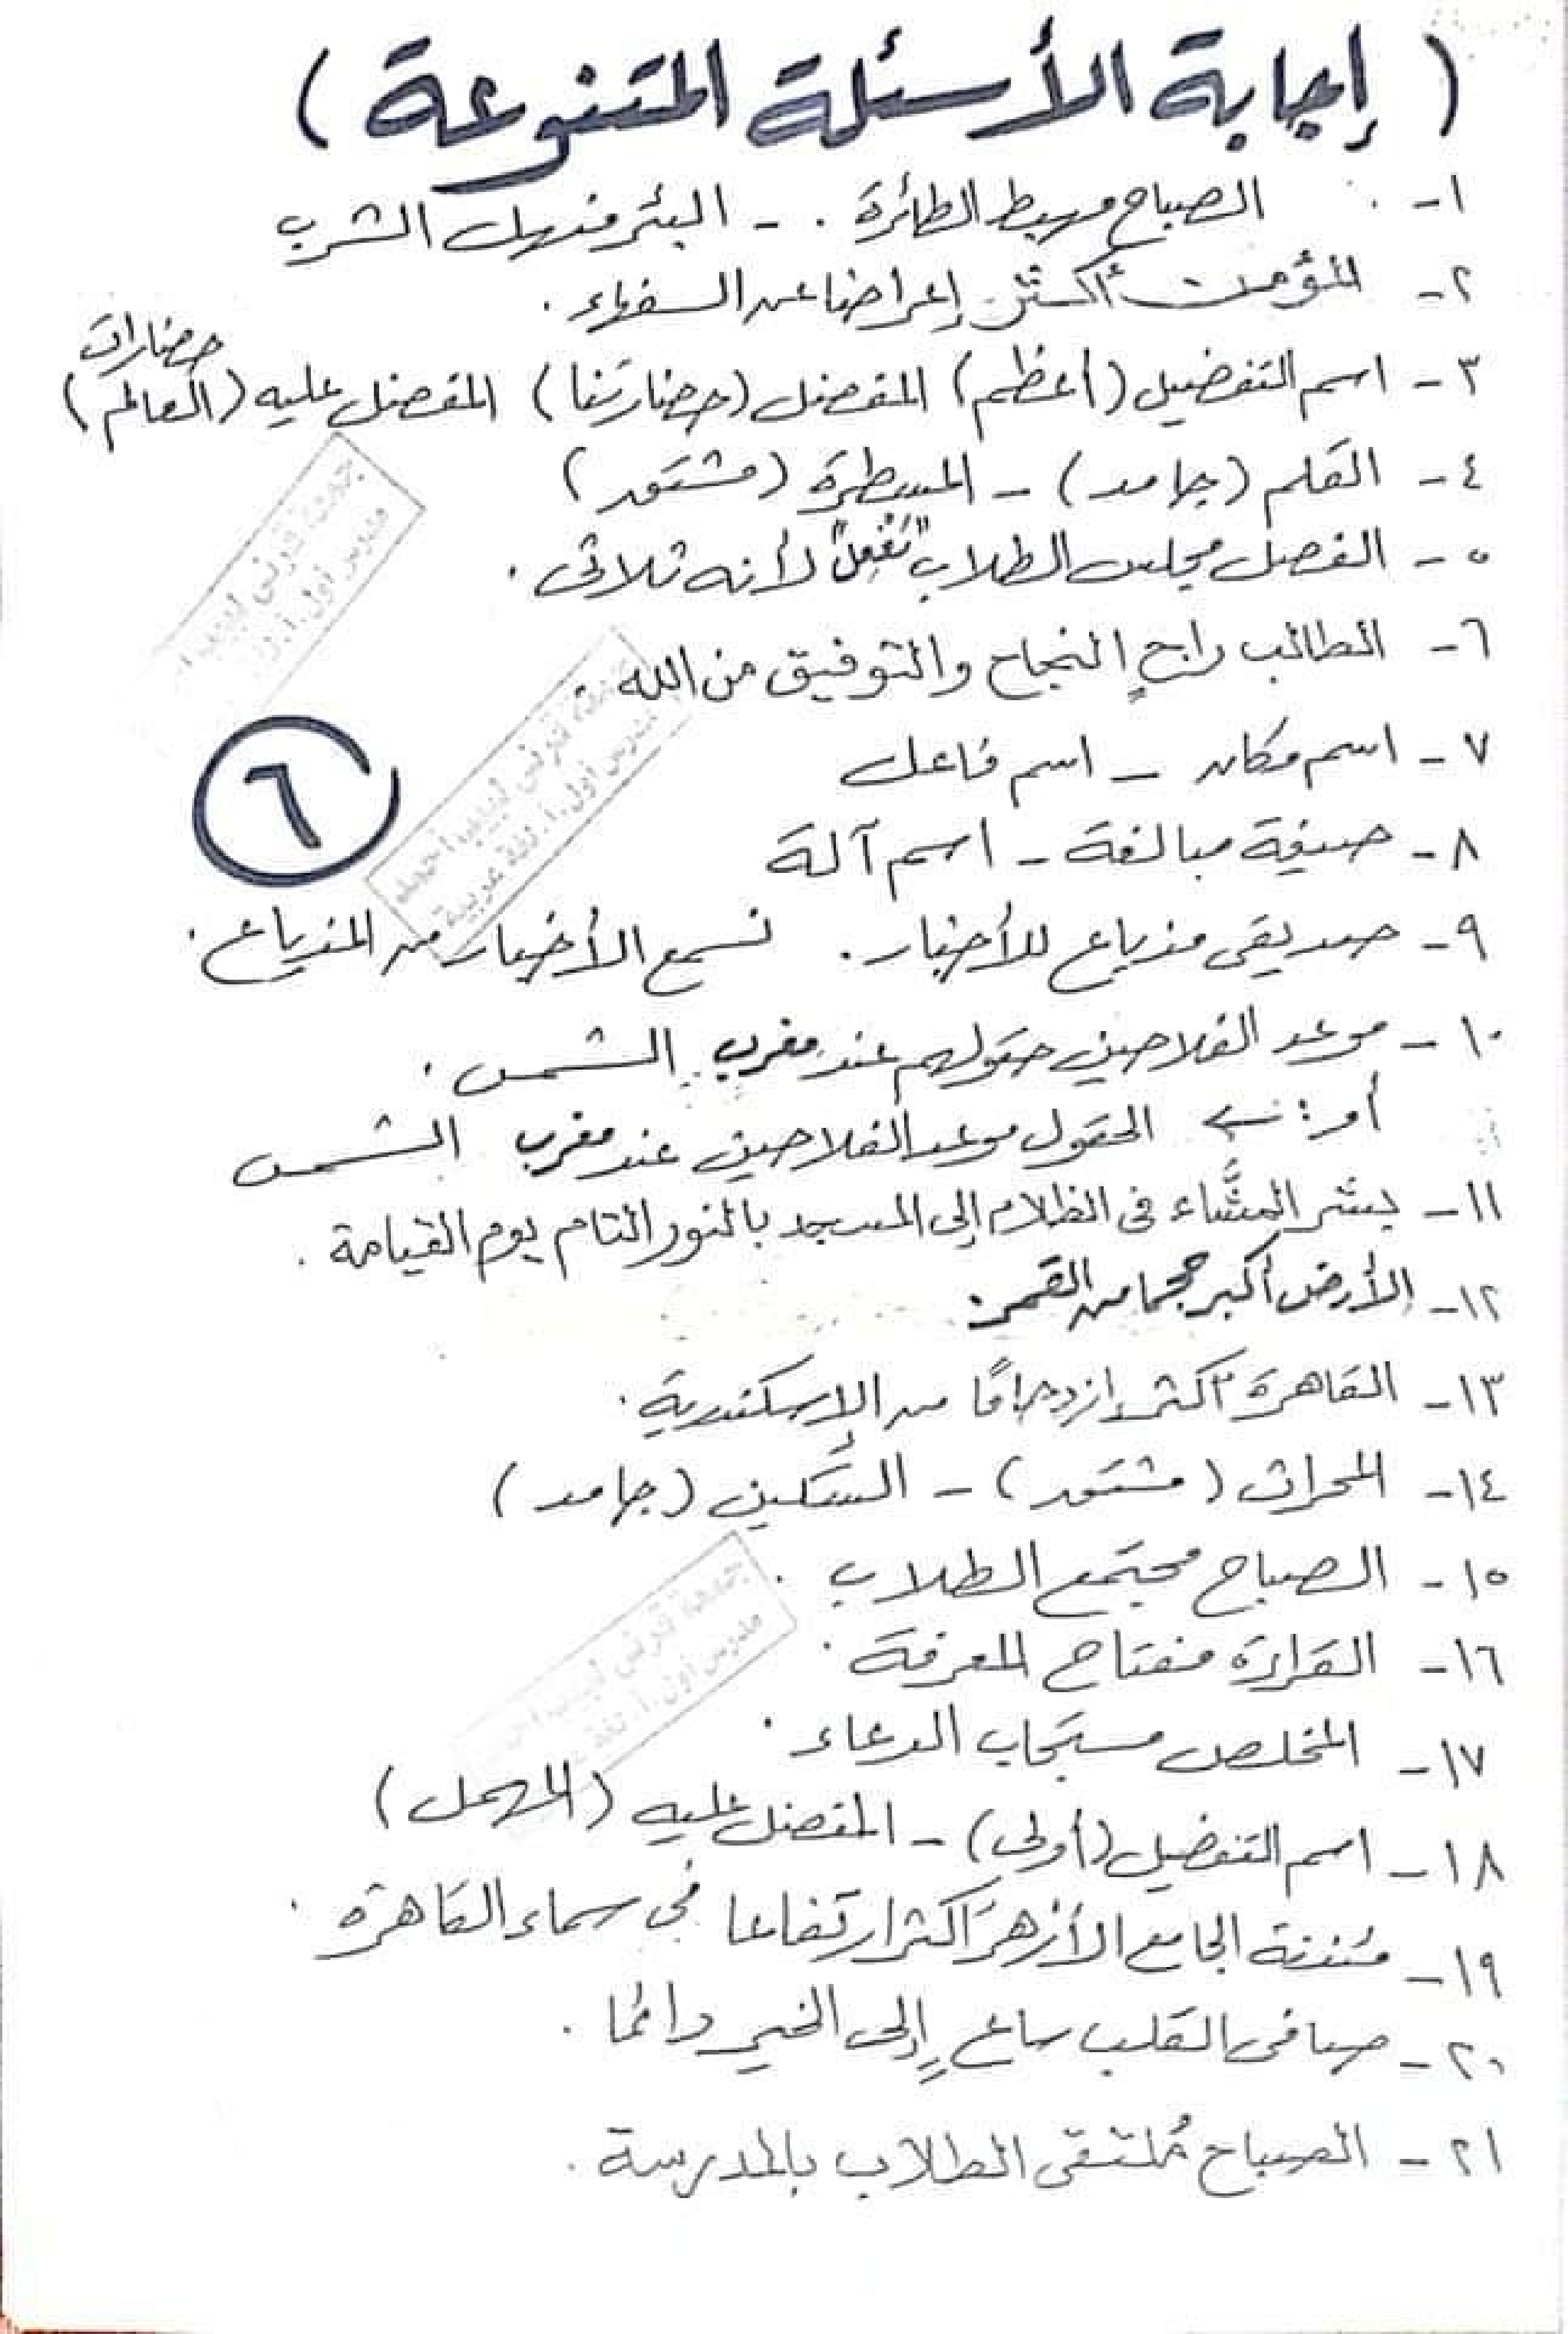 ( إجابة الأسئلة المتنوعة )
١- الصباح مهبط الطائرة . - البئر منهل الشرب
٢- المؤمنات أكثر إعراضا عن السفهاء .
حضارات
٣- اسم التفضيل (أعظم) المفضل (حضارتنا) المفضل عليه (العالم)
٤- القلم (جامد) - المسطرة (مشتق)
٥- الفصل مجلس الطلاب "مَفْعِل" لأنه ثلاثى .
٦- الطالب راجٍ النجاح والتوفيق من الله .
٧- اسم مكان - اسم فاعل
٨- صيغة مبالغة - اسم آلة
٩- صديقى مذياع للأخبار . نسمع الأخبار من المذياع .
١٠- موعد الفلاحين حقولهم عند مغرب الشمس .
أو : الحقول موعد الفلاحين عند مغرب الشمس
١١- بشر المشَّاء فى الظلام إلى المسجد بالنور التام يوم القيامة .
١٢- الأرض أكبر حجما من القمر .
١٣- القاهرة أكثر ازدحامًا من الإسكندرية .
١٤- المحراث (مشتق) - السكين (جامد)
١٥- الصباح مجتمع الطلاب .
١٦- القراءة مفتاح المعرفة .
١٧- المخلص مستجاب الدعاء .
١٨- اسم التفضيل (أولى) - المفضل عليه (المهمل)
١٩- مئذنة الجامع الأزهر أكثر ارتفاعا فى سماء القاهرة .
٢٠- صافى القلب ساعٍ إلى الخير دائما .
٢١- الصباح مُلتقى الطلاب بالمدرسة .
٦
جمعة قرنى لبيب
مدرس أول .أ.
جمعة قرنى لبيب احمد
مدرس أول .أ. لغة عربية
جمعة قرنى لبيب
مدرس أول .أ. لغة